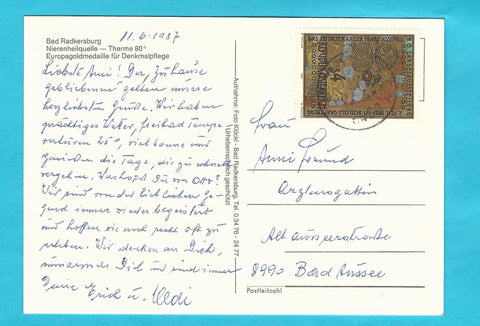 11.6.1987
Bad Radkersburg
Nierenheilquelle — Therme 80°
Europagoldmedaille für Denkmalpflege
Liebste Anni! Der, zu Hause
gebliebenen gelten unsere
herzlichsten Grüße. Wir haben
prächtiges Wetter, Freibad Tempe-
raturen 25°, viel Sonne und
genießen die Tage, die zu schnell
vergehen. Weshalb
Wir sind von der lieblichen Ge-
gend immer wieder begeistert
und hoffen sie noch recht oft zu
erleben. Wir denken an Dich,
umarmen Dich und sind immer
Deine Erich u. Heidi
Aufnahme: Foto Klöckl - Bad Radkersburg, Tel. 0 34 76 - 24 77
Urheberrechtlich geschützt
Frau
Anni Freund
Arztensgattin
Alt ausseerstraße
8990 Bad Aussee
Postleitzahl